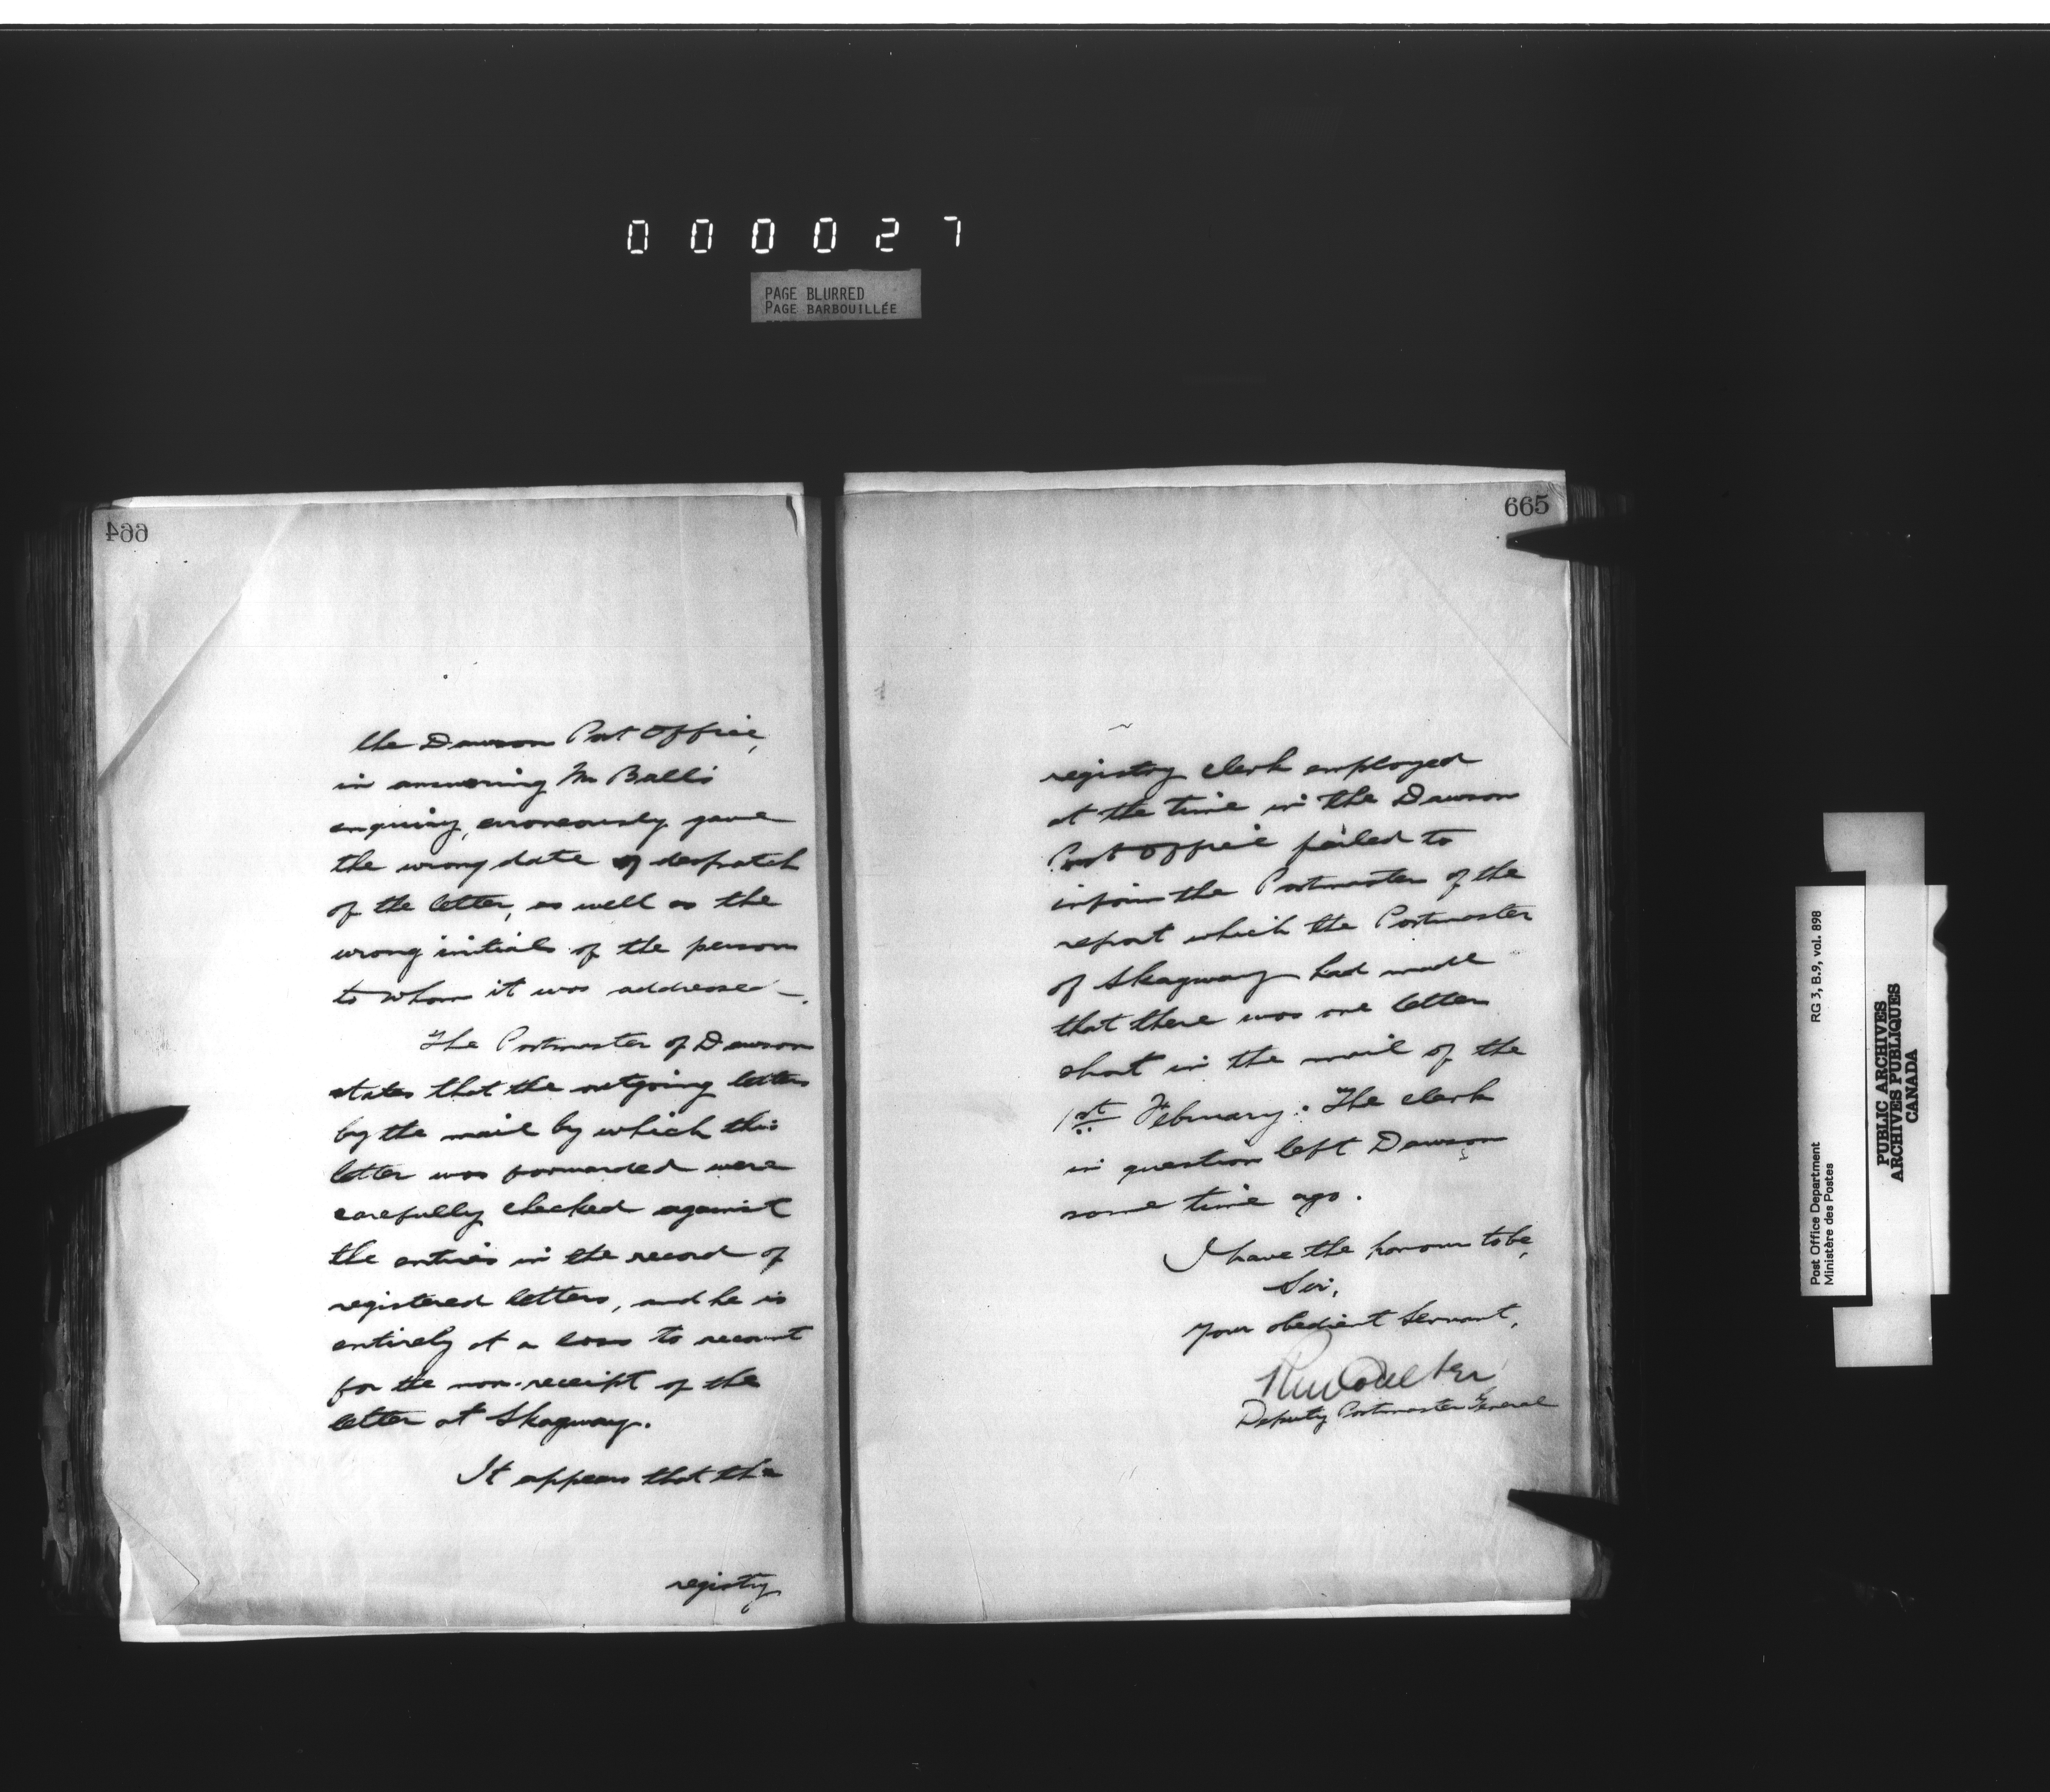 0 0 0 0 2 7
PAGE BLURRED
PAGE BARBOUILLÉE
664
the Dawson Post Office,
in answering Mr Ball's
enquiry, erroneously gave
the wrong date of despatch
of the letter, as well as the
wrong initials of the person
to whom it was addressed -.
The Postmaster of Dawson
states that the outgoing letters
by the mail by which this
letter was forwarded were
carefully checked against
the entries in the record of
registered letters, and he is
entirely at a loss to account
for the non-receipt of the
letter at Skagway.
It appears that the
registry
665
registry clerk employed
at the time in the Dawson
Post Office failed to
inform the Postmaster of the
report which the Postmaster
of Skagway had made
that there was one letter
short in the mail of the
1st February. The clerk
in question left Dawson
some time ago.
I have the honour to be,
Sir,
Your obedient Servant,
RM Coulter
Deputy Postmaster General
Post Office Department RG 3, B.9, vol. 898
Ministère des Postes
PUBLIC ARCHIVES
ARCHIVES PUBLIQUES
CANADA